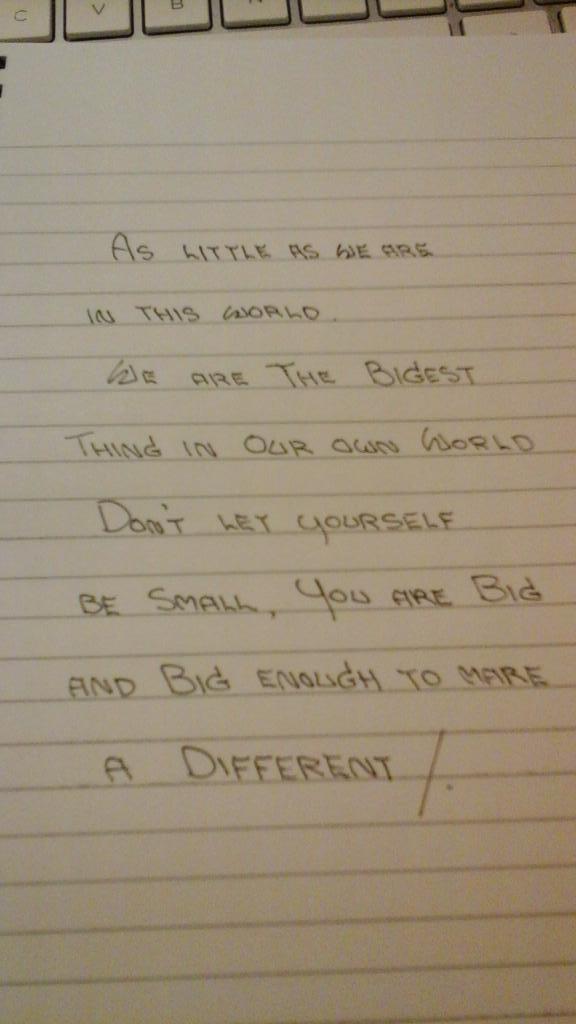 C V B N
As LITTLE AS WE ARE
IN THIS WORLD.
WE ARE THE BIGEST
THING IN OUR OWN WORLD
DON'T LET YOURSELF
BE SMALL, YOU ARE BIG
AND BIG ENOUGH TO MAKE
A DIFFERENT /.